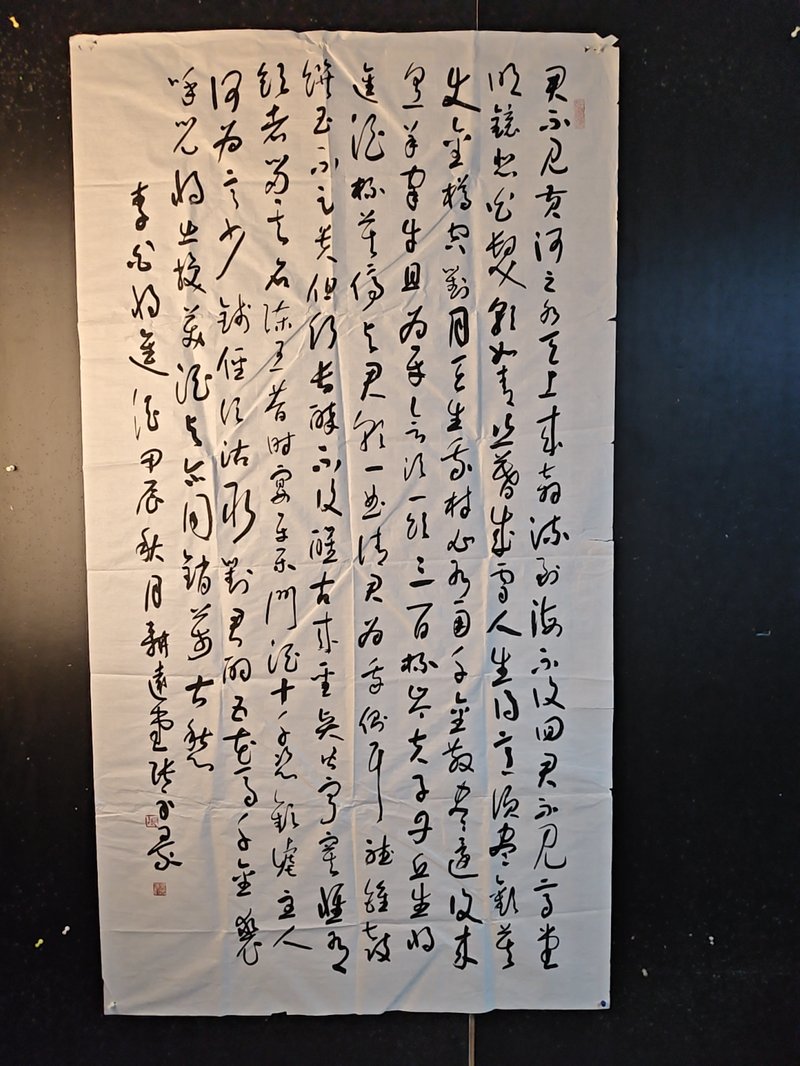 君不見黄河之水天上来奔流到海不復回君不見高堂
明鏡悲白髮朝如青丝暮成雪人生得意須盡歡莫
使金樽空對月天生我材必有用千金散盡還復来
烹羊宰牛且为乐会須一飲三百杯岑夫子丹丘生将
進酒杯莫停与君歌一曲請君为我側耳聽鐘鼓
饌玉不足贵但願长醉不復醒古来聖贤皆寂寞惟有
飲者留其名陈王昔时宴平乐鬥酒十千恣歡謔主人
何为言少錢徑須沽取對君酌五花马千金裘
呼児将出換美酒与尔同銷萬古愁
李白将進酒甲辰秋月耕遠堂